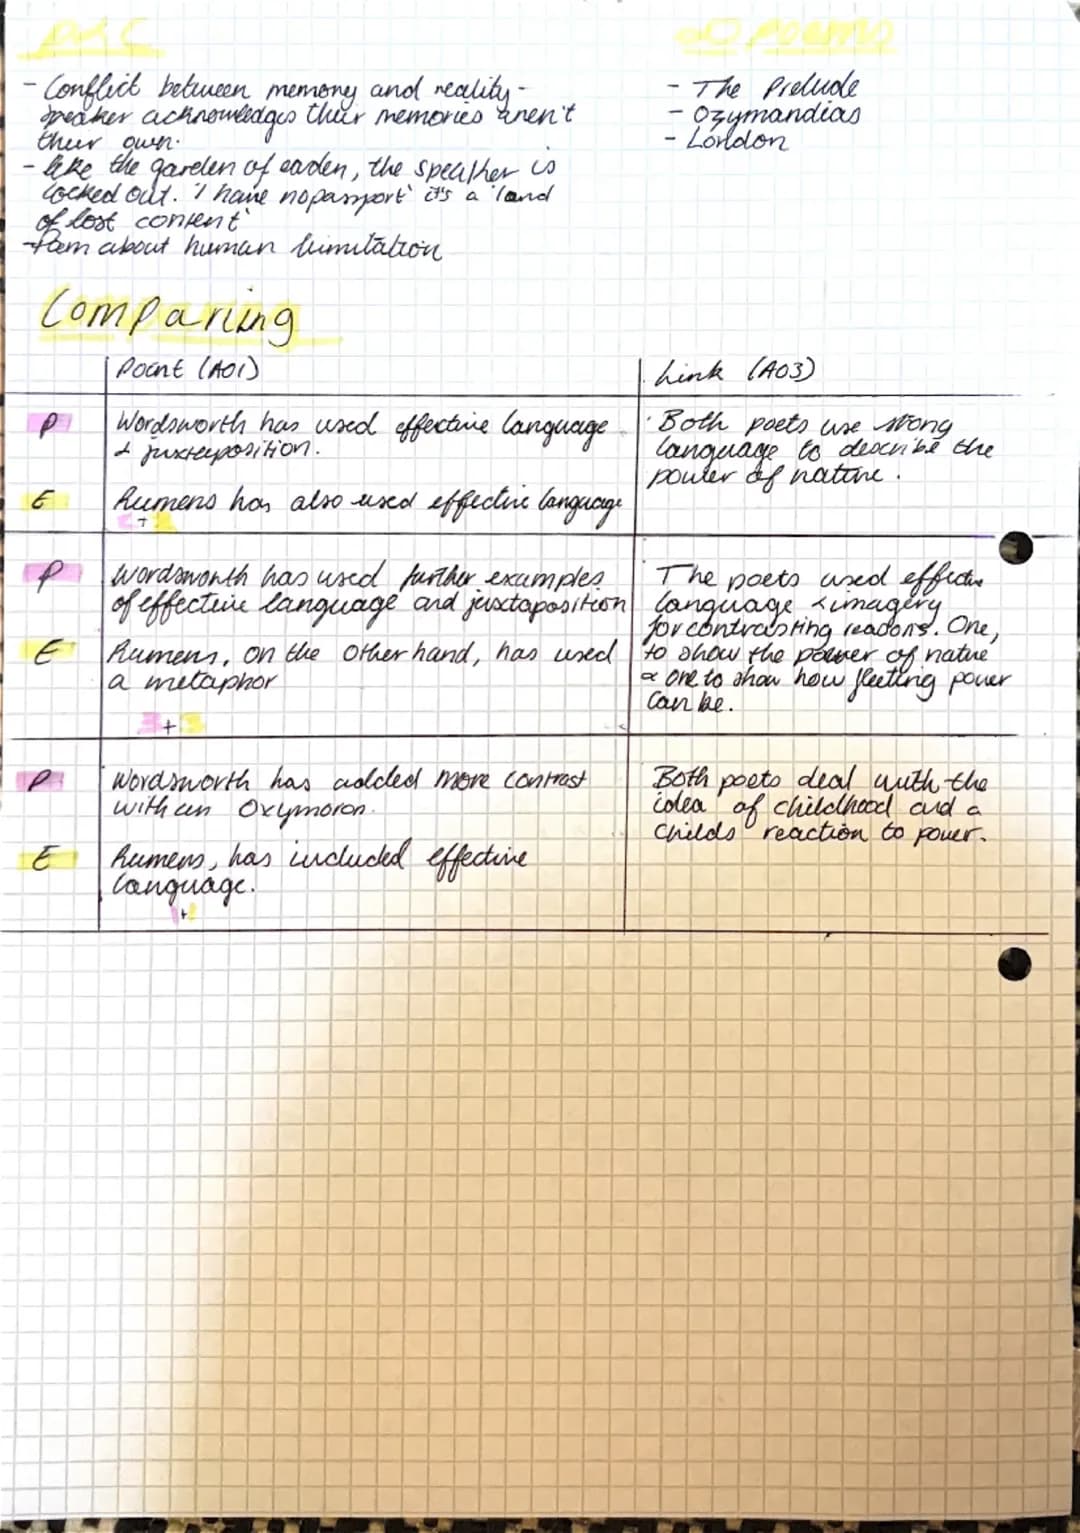 P&C
poems
- Conflict between memory and reality -
speaker acknowledges their memories aren't
their own.
- like the garden of eaden, the speather is
locked out. 'I have no passport' it's a 'land
of lost content'
- Poem about human limitation
- The Prelude
- Ozymandias
- London
Comparing
Point (AO1)
Link (AO3)
P
Wordsworth has used effective language
& juxtaposition.
E
Rumens has also used effective language
+
Both poets use strong
language to describe the
power of nature.
P
Wordsworth has used further examples
of effective language and juxtaposition
E
Rumens, on the other hand, has used
a metaphor
3 + 3
The poets used effective
language & imagery
for contrasting reasons. One,
to show the power of nature
& one to show how fleeting power
can be.
P
Wordsworth has added more contrast
with an Oxymoron.
E
Rumens, has included effective
language.
+
Both poets deal with the
idea of childhood and a
childs reaction to power.